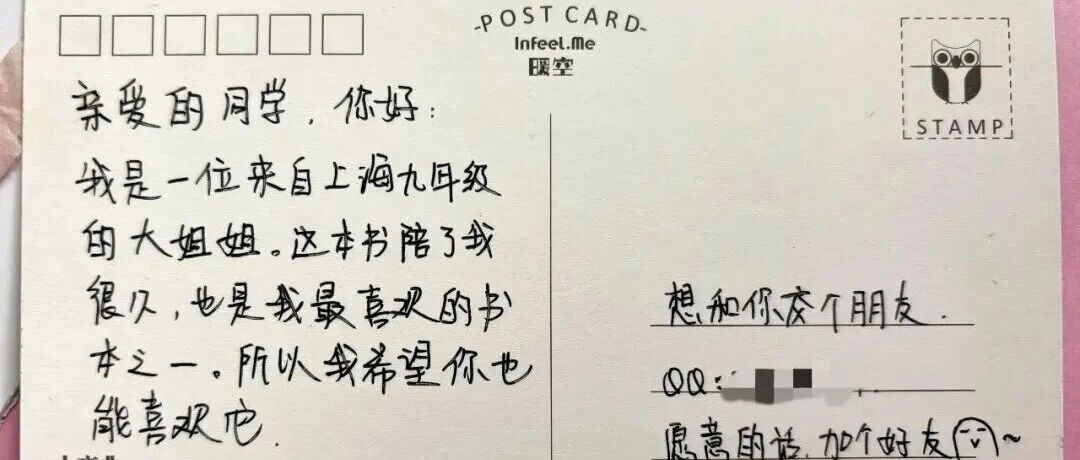 -POST CARD-
Infeel.Me
暖空
STAMP
亲爱的同学，你好：
我是一位来自上海九年级
的大姐姐。这本书陪了我
很久，也是我最喜欢的书
本之一。所以我希望你也
能喜欢它.
想和你交个朋友.
QQ:
愿意的话,加个好友~